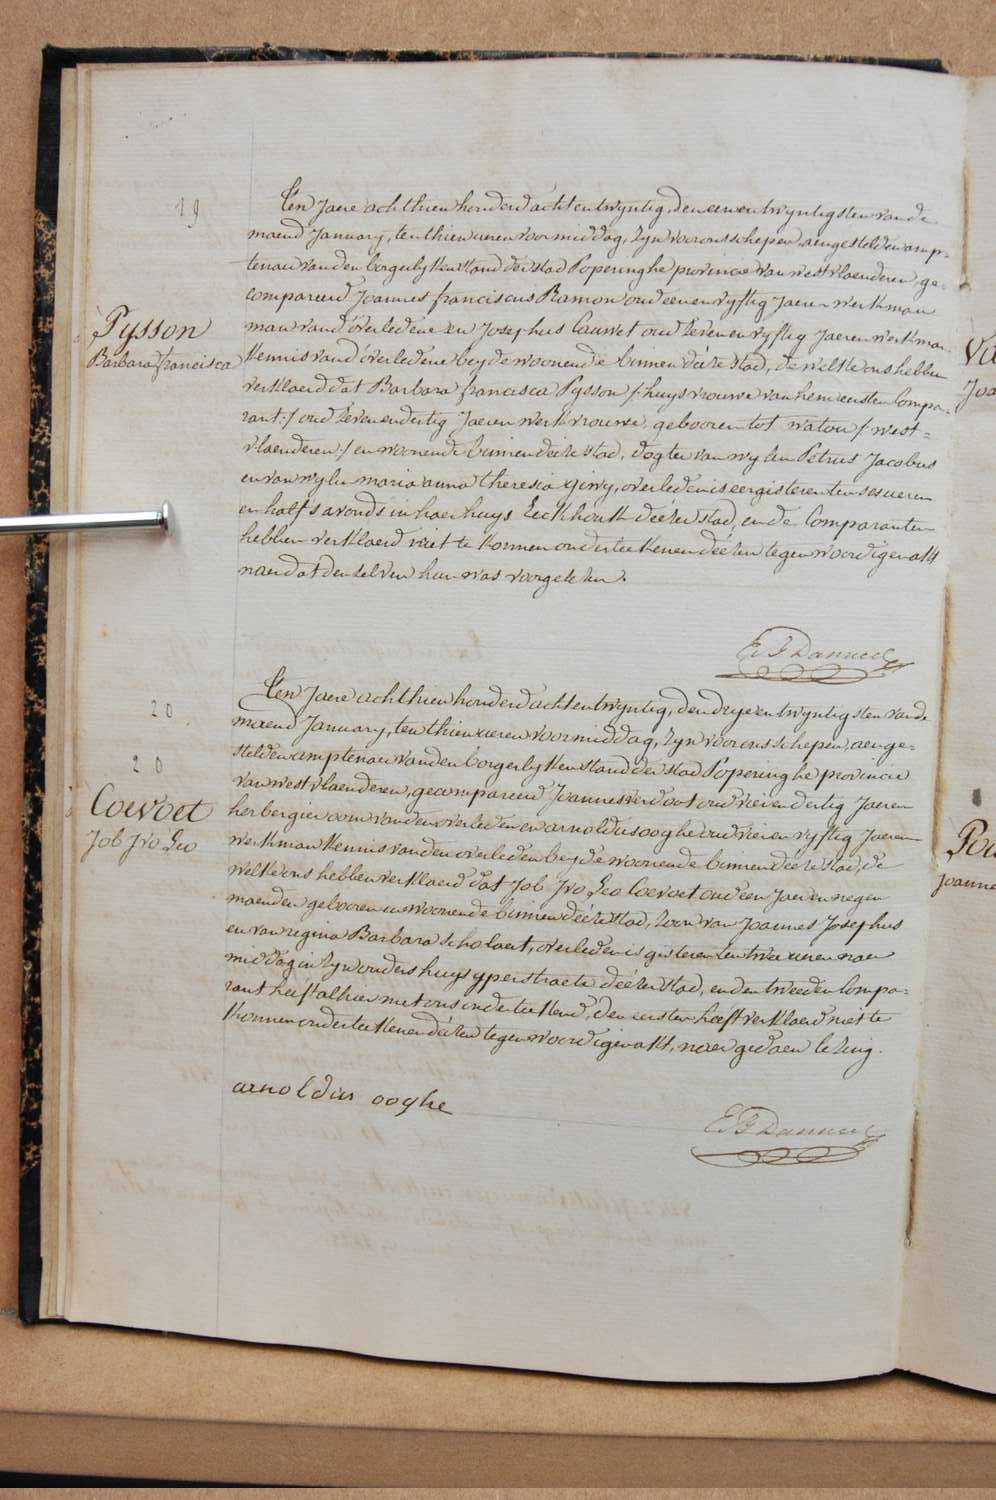 19
Pysson
Barbara francisca
Ten Jaere achthien honderd acht en twyntig, den een en twyntigsten van de
maend January, ten thien ueren voormiddag, zyn voor ons schepen, aengestelden amp-
tenaer van den borgerlyken stand der stad Poperinghe provincie van westvlaenderen, ge-
compareerd Joannes franciscus Ramon oud een en vyftig Jaeren werkman
man vand'overledene en Josephus Cauwet oud zeven en vyftig Jaeren werkman
kennis vand'overledene beyde woonende binnen déeze stad, de welke ons hebben
verklaerd dat Barbara francisca Pysson /: huysvrouwe van hem eersten Compa-
rant :/ oud zeven en dertig Jaeren werkvrouwe, gebooren tot watou /: west=
vlaenderen :/ en woonende binnen déeze stad, dogter van wylen Petrus Jacobus
en van wylen maria anna theresia overleden is eergisteren ten ses ueren
en half s'avonds in haer huys Eeckhoutk déezer stad, en de Comparanten
hebben verklaerd niet te konnen onderteekenen déézen tegenwoordigen akt
naer dat den zelven hun was voorgelezen.
20
20
Coevoet
Job Ivo Leo
Ten Jaere achthien honderd acht en twyntig, den drye en twyntigsten van de
maend January, ten thien ueren voormiddag, zyn voor ons schepen, aenge-
stelden amptenaer van den borgerlyken stand der stad Poperinghe provincie
van westvlaenderen, gecompareerd Joannes verdoot oud vier en dertig Jaeren
herbergier oom van den overledenen arnoldus ooghe oud vier en vyftig Jaeren
werkman kennis van den overleden beyde woonende binnen déeze stad, de
welke ons hebben verklaerd dat Job Ivo Leo Coevoet oud een Jaer en negen
maenden gebooren en woonende binnen déeze stad, zoon van Joannes Josephus
en van regina Barbara scholaert, overleden is gisteren ten twee ueren naer
middag in zyn ouders huys yperstraete déezer stad, en den tweeden Compa-
rant heeft alhier met ons onderteekend, den eersten heeft verklaerd niet te
konnen onderteekenen déézen tegenwoordigen akt, naer gedaen lezing.
arnoldus ooghe